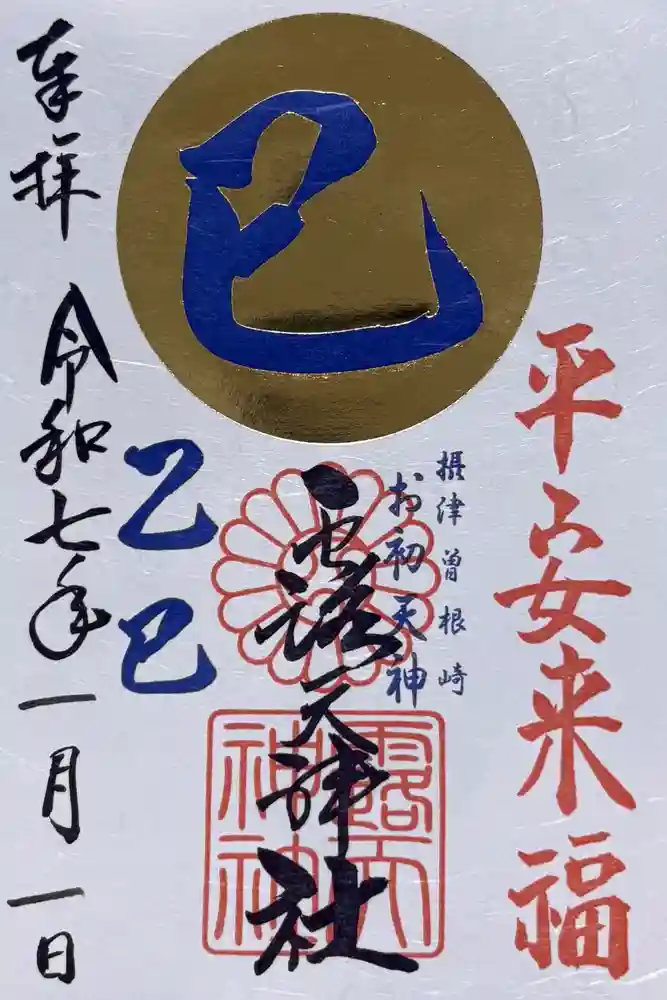 巳
平安来福
摂津曽根崎
お初天神
露天神社
露天
神社
乙巳
奉拝
令和七年一月一日